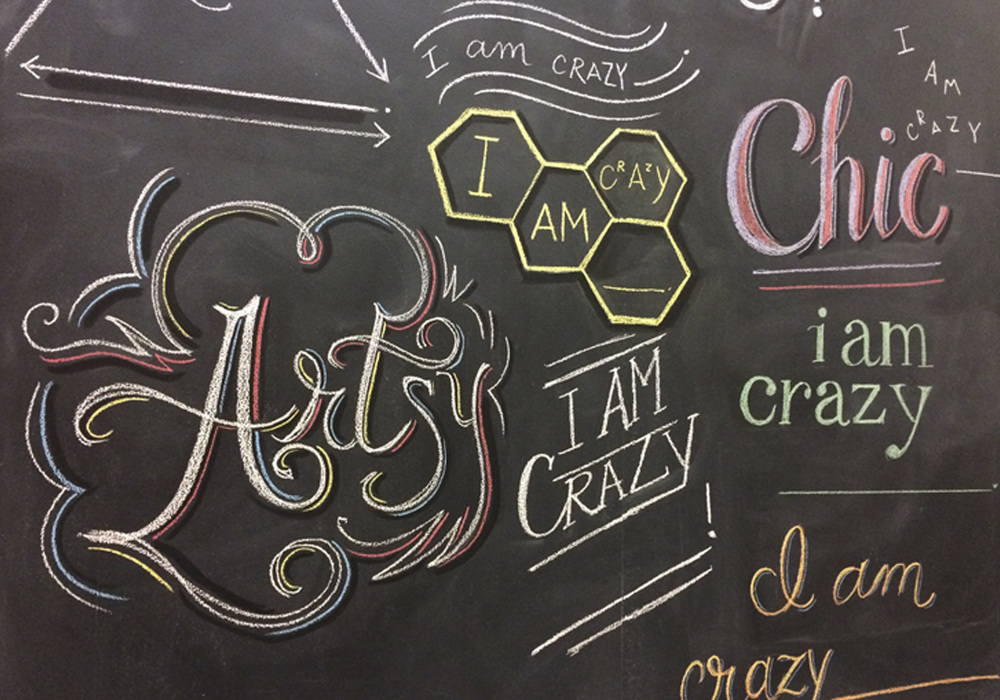 I am CRAZY
I
AM
CRAZY
I
AM
CRAZY
Chic
Artsy
I AM
CRAZY!
i am
crazy
I am
crazy